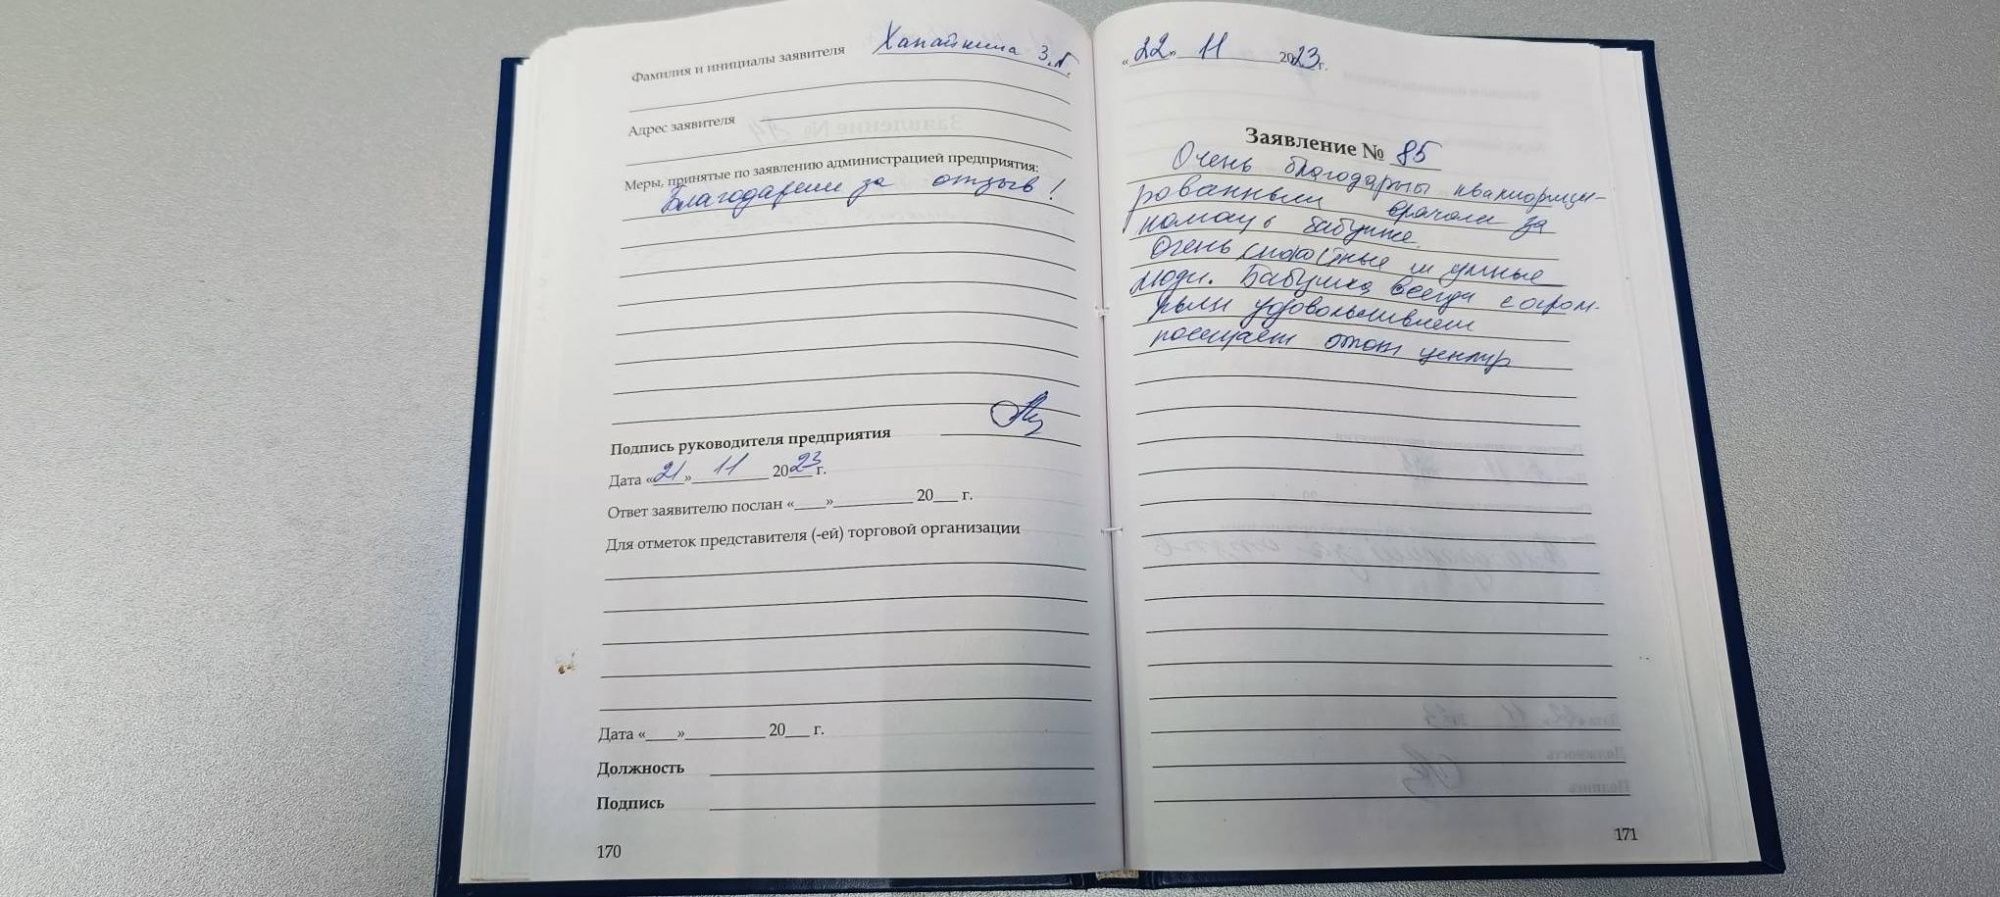 Фамилия и инициалы заявителя Хапайкина З.Г.
Адрес заявителя
Меры, принятые по заявлению администрацией предприятия:
Благодарим за отзыв!
Подпись руководителя предприятия
Дата «21» 11 2023 г.
Ответ заявителю послан «___»__________ 20___ г.
Для отметок представителя (-ей) торговой организации
Дата «____»__________ 20___ г.
Должность
Подпись
170
«22» 11 2023 г.
Заявление № 85
Очень благодарны квалифици-
рованным врачам за
помощь бабушке.
Очень и умные
люди. Бабушка всегда с огром-
ным удовольствием
посещает этот центр
171